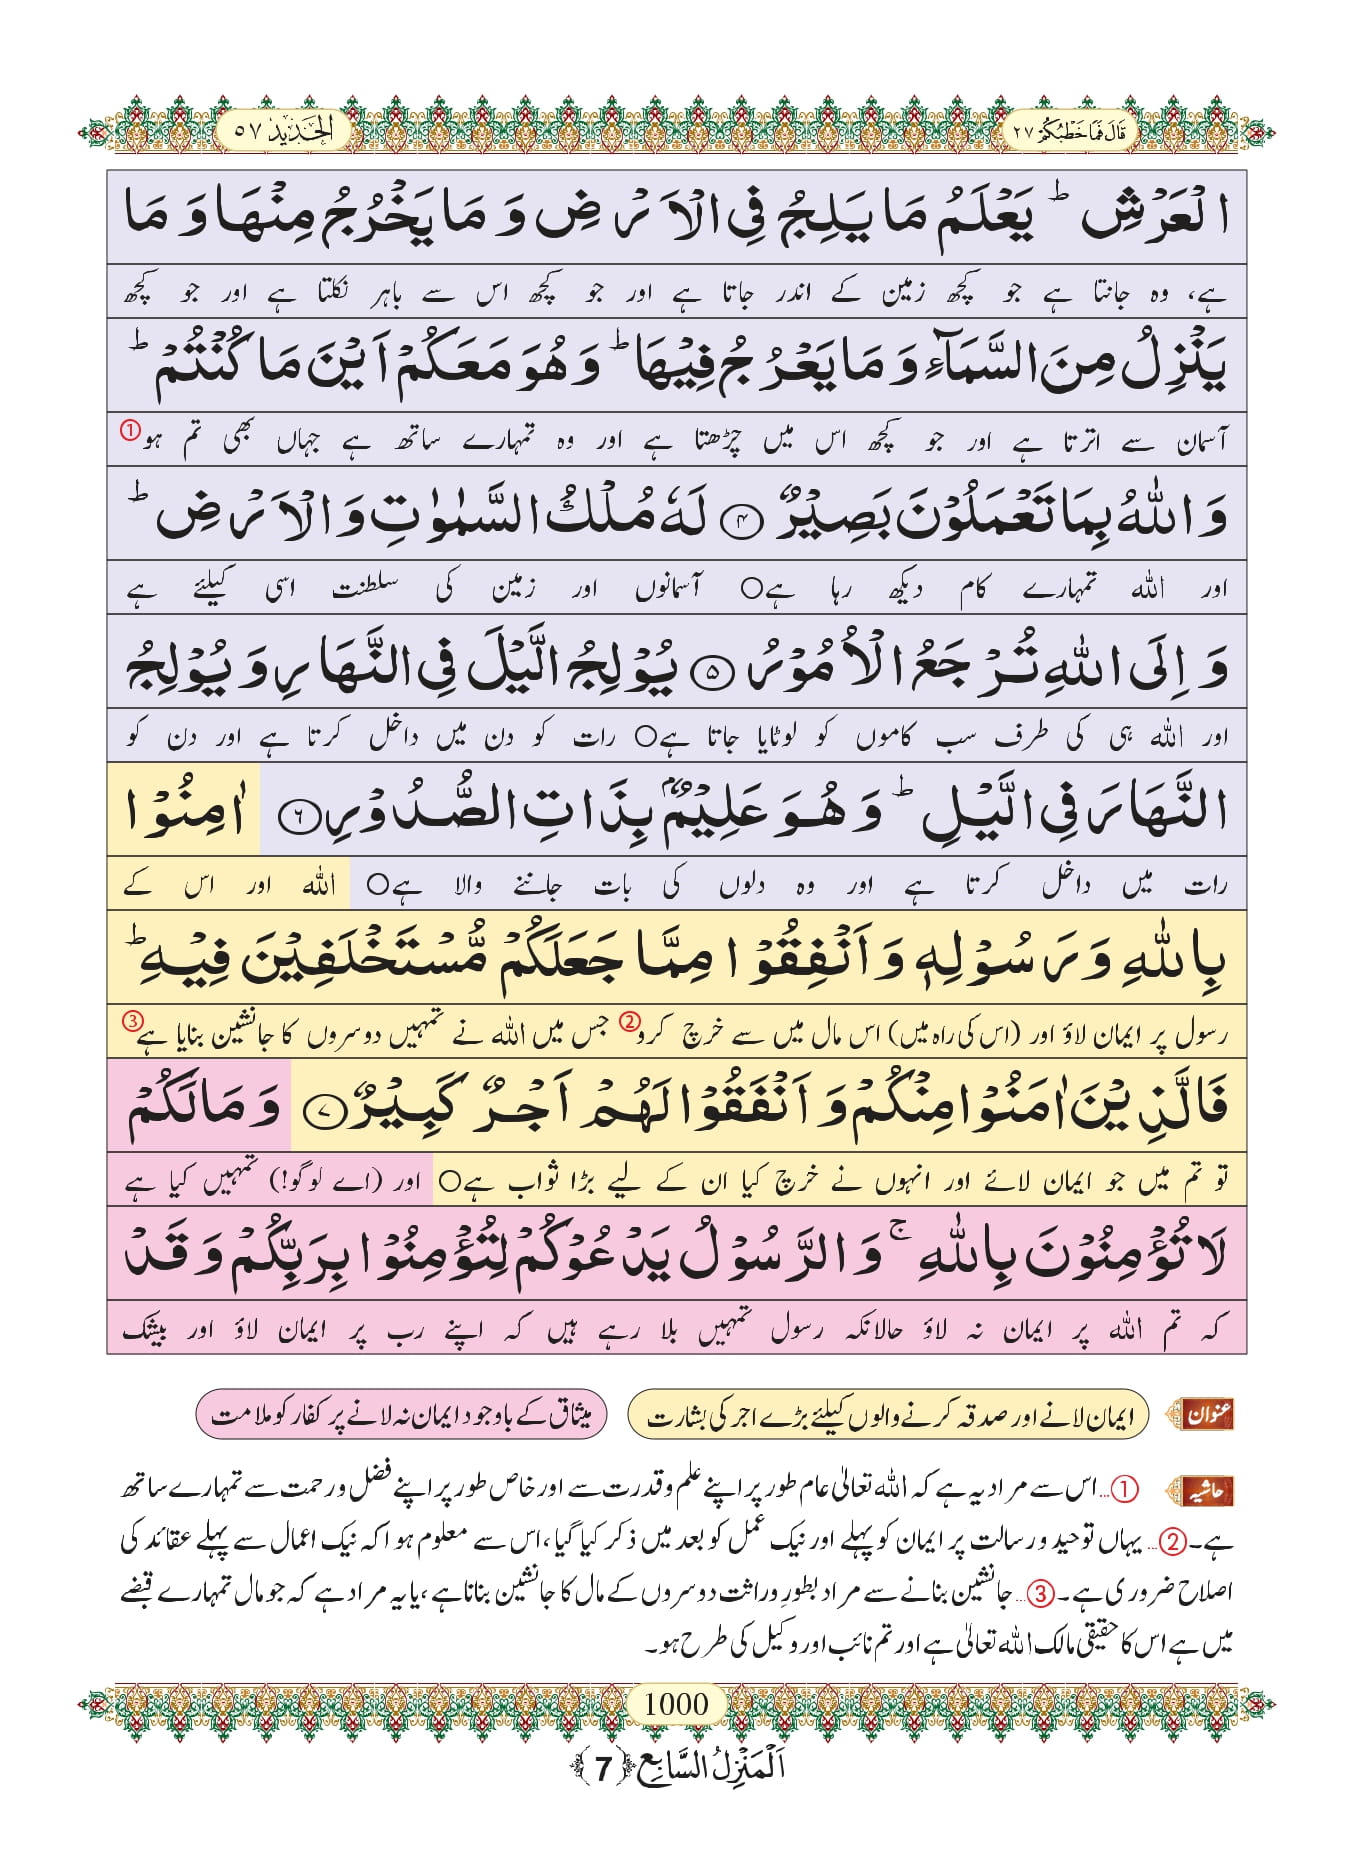 قَالَ فَمَا خَطْبُكُمْ ٢٧
الْحَدِيْد ٥٧
الْعَرْشِ ؕ یَعْلَمُ مَا یَلِجُ فِی الْاَرْضِ وَ مَا یَخْرُجُ مِنْهَا وَ مَا
ہے، وہ جانتا ہے جو کچھ زمین کے اندر جاتا ہے اور جو کچھ اس سے باہر نکلتا ہے اور جو کچھ
یَنْزِلُ مِنَ السَّمَآءِ وَ مَا یَعْرُجُ فِیْهَا ؕ وَ هُوَ مَعَكُمْ اَیْنَ مَا كُنْتُمْ ؕ
آسمان سے اترتا ہے اور جو کچھ اس میں چڑھتا ہے اور وہ تمہارے ساتھ ہے جہاں بھی تم ہو ①
وَ اللّٰهُ بِمَا تَعْمَلُوْنَ بَصِیْرٌ ﴿۴﴾ لَهٗ مُلْكُ السَّمٰوٰتِ وَ الْاَرْضِ ؕ
اور اللہ تمہارے کام دیکھ رہا ہے○ آسمانوں اور زمین کی سلطنت اسی کیلئے ہے
وَ اِلَى اللّٰهِ تُرْجَعُ الْاُمُوْرُ ﴿۵﴾ یُوْلِجُ الَّیْلَ فِی النَّهَارِ وَ یُوْلِجُ
اور اللہ ہی کی طرف سب کاموں کو لوٹایا جاتا ہے○ رات کو دن میں داخل کرتا ہے اور دن کو
النَّهَارَ فِی الَّیْلِ ؕ وَ هُوَ عَلِیْمٌۢ بِذَاتِ الصُّدُوْرِ ﴿۶﴾ اٰمِنُوْا
رات میں داخل کرتا ہے اور وہ دلوں کی بات جاننے والا ہے○ اللہ اور اس کے
بِاللّٰهِ وَ رَسُوْلِهٖ وَ اَنْفِقُوْا مِمَّا جَعَلَكُمْ مُّسْتَخْلَفِیْنَ فِیْهِ ؕ
رسول پر ایمان لاؤ اور (اس کی راہ میں) اس مال میں سے خرچ کرو ② جس میں اللہ نے تمہیں دوسروں کا جانشین بنایا ہے ③
فَالَّذِیْنَ اٰمَنُوْا مِنْكُمْ وَ اَنْفَقُوْا لَهُمْ اَجْرٌ كَبِیْرٌ ﴿۷﴾ وَ مَا لَكُمْ
تو تم میں جو ایمان لائے اور انہوں نے خرچ کیا ان کے لیے بڑا ثواب ہے○ اور (اے لوگو!) تمہیں کیا ہے
لَا تُؤْمِنُوْنَ بِاللّٰهِ ۚ وَ الرَّسُوْلُ یَدْعُوْكُمْ لِتُؤْمِنُوْا بِرَبِّكُمْ وَ قَدْ
کہ تم اللہ پر ایمان نہ لاؤ حالانکہ رسول تمہیں بلا رہے ہیں کہ اپنے رب پر ایمان لاؤ اور بیشک
عنوان ایمان لانے اور صدقہ کرنے والوں کیلئے بڑے اجر کی بشارت میثاق کے باوجود ایمان نہ لانے پر کفار کو ملامت
حاشیہ ①... اس سے مراد یہ ہے کہ اللہ تعالیٰ عام طور پر اپنے علم و قدرت سے اور خاص طور پر اپنے فضل و رحمت سے تمہارے ساتھ
ہے۔ ②... یہاں توحید و رسالت پر ایمان کو پہلے اور نیک عمل کو بعد میں ذکر کیا گیا، اس سے معلوم ہوا کہ نیک اعمال سے پہلے عقائد کی
اصلاح ضروری ہے۔ ③... جانشین بنانے سے مراد بطورِ وراثت دوسروں کے مال کا جانشین بنانا ہے، یا یہ مراد ہے کہ جو مال تمہارے قبضے
میں ہے اس کا حقیقی مالک اللہ تعالیٰ ہے اور تم نائب اور وکیل کی طرح ہو۔
1000
اَلْمَنْزِلُ السَّابِع ﴿7﴾